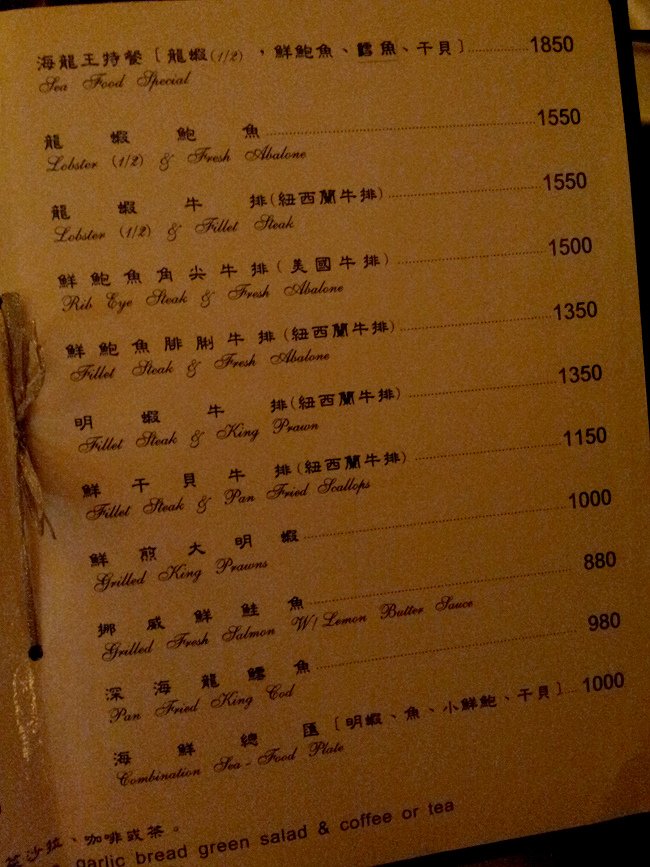 海龍王特餐〔龍蝦(1/2)，鮮鮑魚、鱈魚、干貝〕..........1850
Sea Food Special
龍蝦鮑魚..........1550
Lobster (1/2) & Fresh Abalone
龍蝦牛排(紐西蘭牛排)..........1550
Lobster (1/2) & Fillet Steak
鮮鮑魚角尖牛排(美國牛排)..........1500
Rib Eye Steak & Fresh Abalone
鮮鮑魚腓脷牛排(紐西蘭牛排)..........1350
Fillet Steak & Fresh Abalone
明蝦牛排(紐西蘭牛排)..........1350
Fillet Steak & King Prawn
鮮干貝牛排(紐西蘭牛排)..........1150
Fillet Steak & Pan Fried Scallops
鮮煎大明蝦..........1000
Grilled King Prawns
挪威鮮鮭魚..........880
Grilled Fresh Salmon W/Lemon Butter Sauce
深海龍鱈魚..........980
Pan Fried King Cod
海鮮總匯〔明蝦、魚、小鮮鮑、干貝〕..........1000
Combination Sea-Food Plate
沙拉、咖啡或茶。
garlic bread green salad & coffee or tea